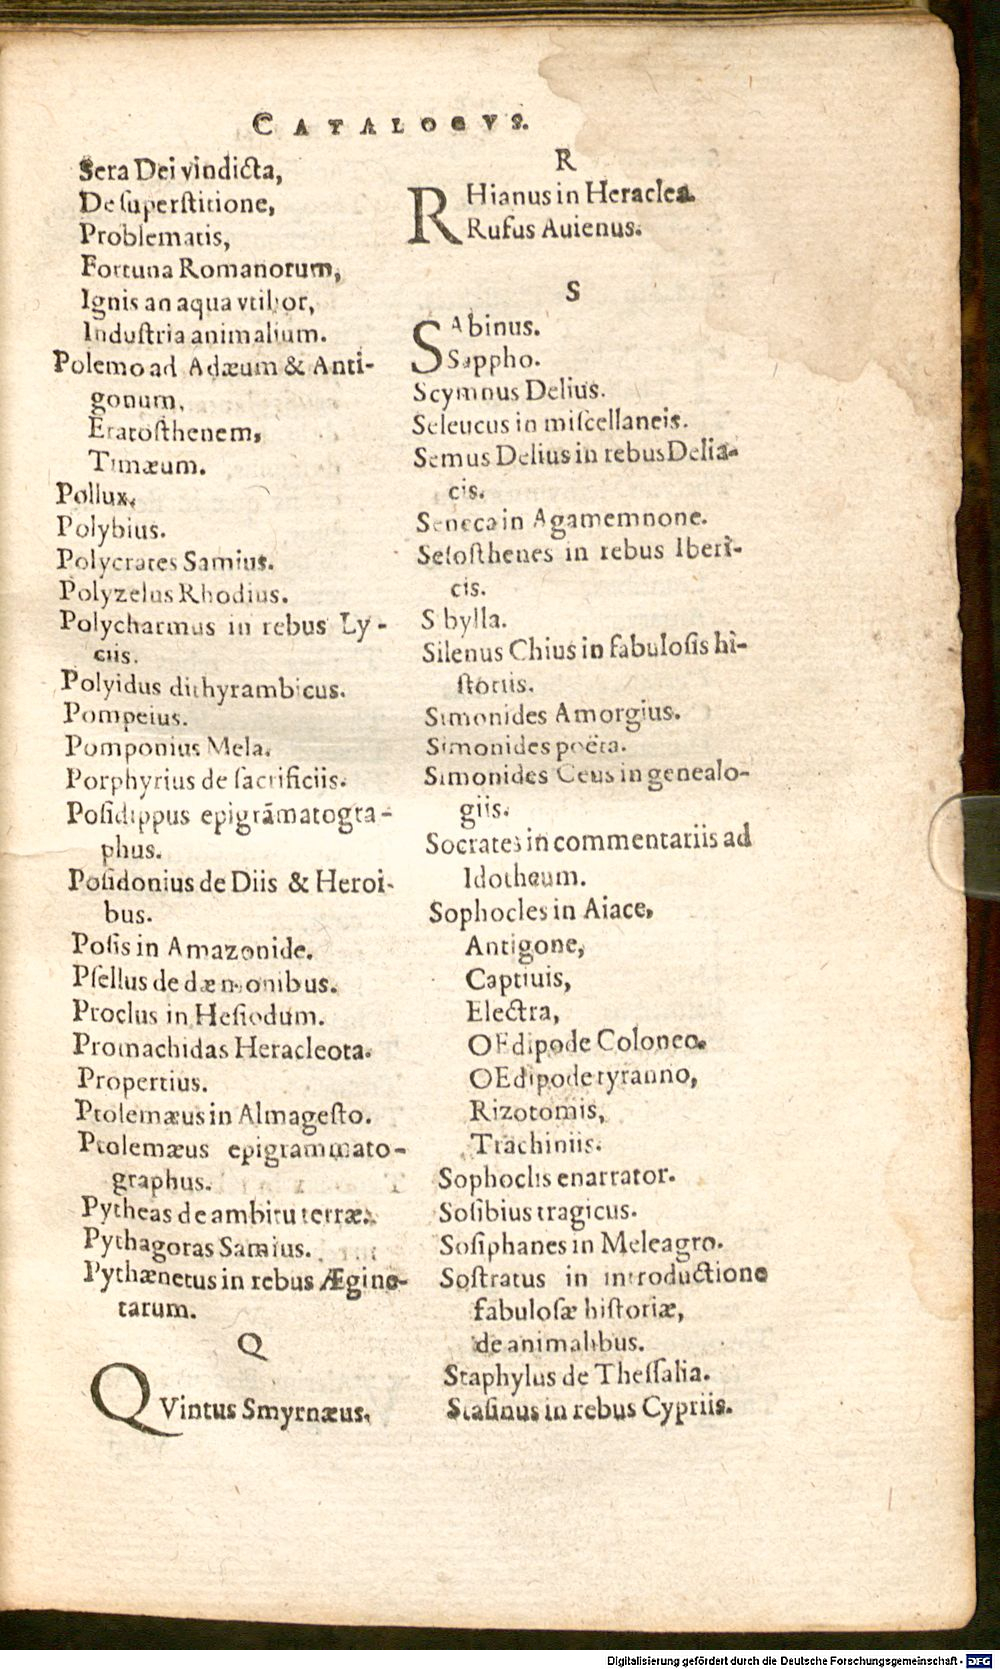 CATALOGVS.
Sera Dei vindicta,
De superstitione,
Problematis,
Fortuna Romanorum,
Ignis an aqua vtilior,
Industria animalium.
Polemo ad Adæum & Anti-
gonum,
Eratosthenem,
Timæum.
Pollux.
Polybius.
Polycrates Samius.
Polyzelus Rhodius.
Polycharmus in rebus Ly-
ciis.
Polyidus dithyrambicus.
Pompeius.
Pomponius Mela.
Porphyrius de sacrificiis.
Posidippus epigrãmatogra-
phus.
Posidonius de Diis & Heroi-
bus.
Posis in Amazonide.
Psellus de dæmonibus.
Proclus in Hesiodum.
Promachidas Heracleota.
Propertius.
Ptolemæus in Almagesto.
Ptolemæus epigrammato-
graphus.
Pytheas de ambitu terræ.
Pythagoras Samius.
Pythænetus in rebus Ægine-
tarum.
Q
QVintus Smyrnæus.
R
RHianus in Heraclea.
Rufus Auienus.
S
SAbinus.
Sappho.
Scymnus Delius.
Seleucus in miscellaneis.
Semus Delius in rebus Delia-
cis.
Seneca in Agamemnone.
Sesosthenes in rebus Iberi-
cis.
Sibylla.
Silenus Chius in fabulosis hi-
storiis.
Simonides Amorgius.
Simonides poëta.
Simonides Ceus in genealo-
giis.
Socrates in commentariis ad
Idotheum.
Sophocles in Aiace,
Antigone,
Captiuis,
Electra,
OEdipode Coloneo.
OEdipode tyranno,
Rizotomis,
Trachiniis.
Sophoclis enarrator.
Sosibius tragicus.
Sosiphanes in Meleagro.
Sostratus in introductione
fabulosæ historiæ,
de animalibus.
Staphylus de Thessalia.
Stasinus in rebus Cypriis.
Digitalisierung gefördert durch die Deutsche Forschungsgemeinschaft - DFG